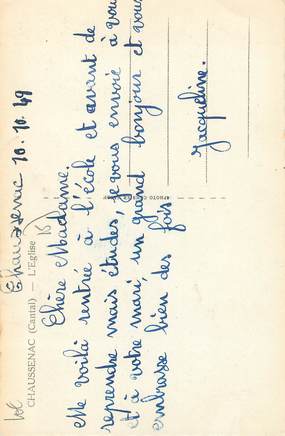 Chaussenac 10.10.49
Chère Madame.
Me voilà rentrée à l'école et avant de
reprendre mais études, je vous envoie à vous
et à votre mari, un grand bonjour et vous
embrasse bien des fois
Jacqueline.
CHAUSSENAC (Cantal) — L'Eglise